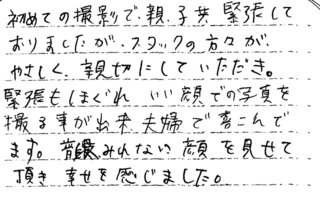 初めての撮影で、親、子共、緊張して
おりましたが、スタッフの方々が、
やさしく、親切にしていただき。
緊張もほぐれ いい顔での写真を
撮る事が出来、夫婦で喜こんで
ます。普段みれない 顔を見せて
頂き 幸せを感じました。